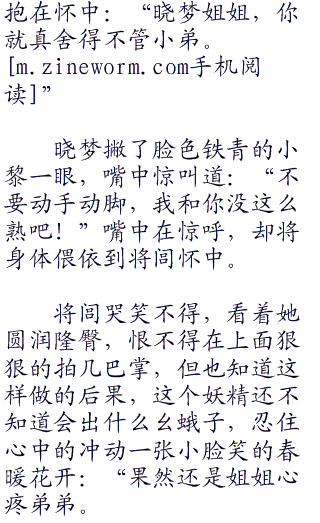 抱在怀中：“晓梦姐姐，你
就真舍得不管小弟。
[m.zineworm.com手机阅
读]”
晓梦撇了脸色铁青的小
黎一眼，嘴中惊叫道：“不
要动手动脚，我和你没这么
熟吧！”嘴中在惊呼，却将
身体偎依到将闾怀中。
将闾哭笑不得，看着她
圆润隆臀，恨不得在上面狠
狠的拍几巴掌，但也知道这
样做的后果，这个妖精还不
知道会出什么幺蛾子，忍住
心中的冲动一张小脸笑的春
暖花开：“果然还是姐姐心
疼弟弟。